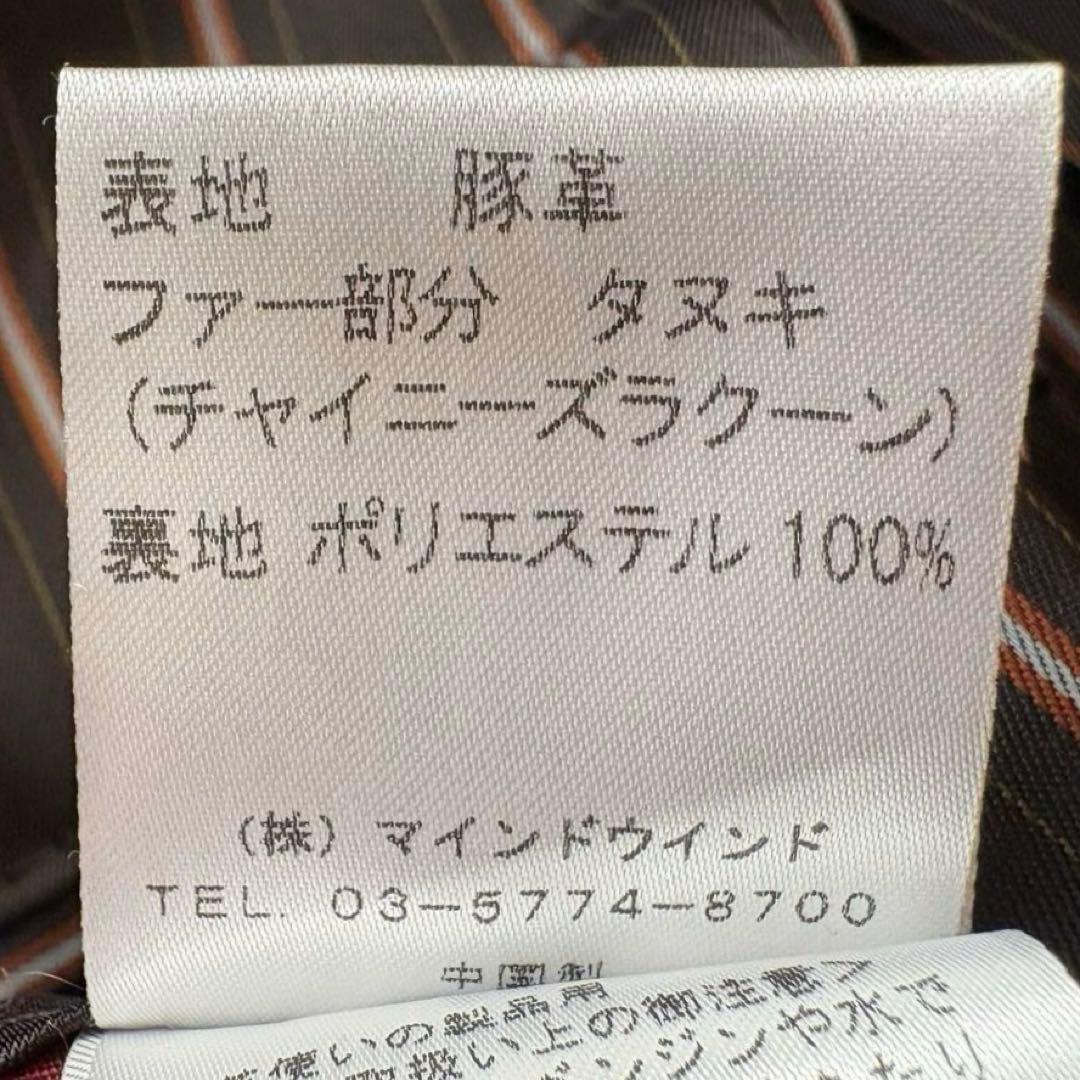 表地 豚革
ファー部分 タヌキ
(チャイニーズラクーン)
裏地 ポリエステル 100%
(株) マインドウインド
TEL. 03-5774-8700
中国製
使いの製品用
取扱い上の御注意
ンジンや水で